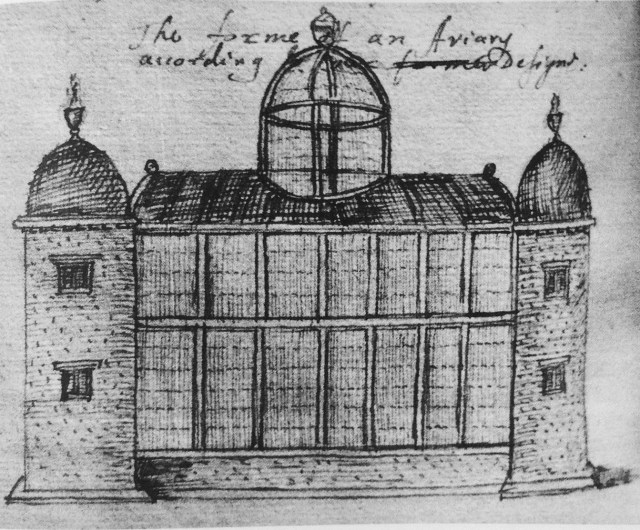 The forme of an Aviary
according former Designe.